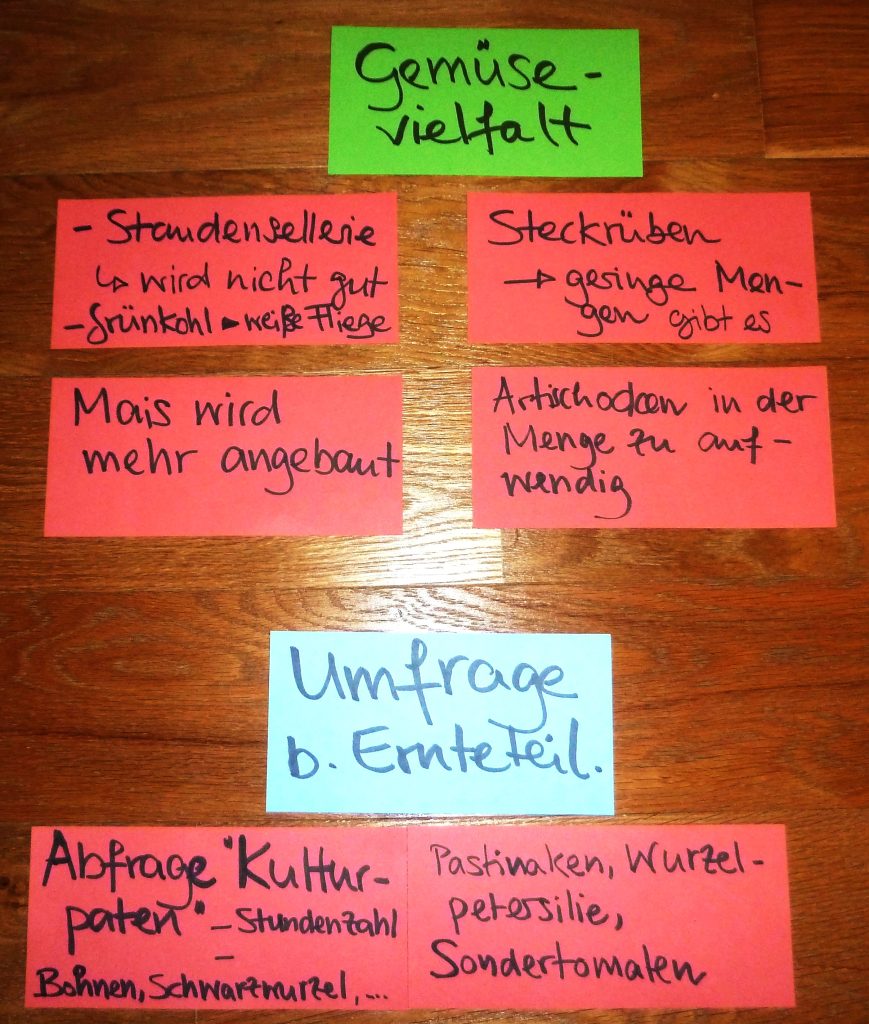 Gemüse-
vielfalt
- Staudensellerie
↳ wird nicht gut
- Grünkohl ► weiße Fliege
Steckrüben
→ geringe Men-
gen gibt es
Mais wird
mehr angebaut
Artischocken in der
Menge zu auf-
wendig
Umfrage
b. ErnteTeil.
Abfrage "Kultur-
paten" - Stundenzahl
-
Bohnen, Schwarzwurzel, ...
Pastinaken, Wurzel-
petersilie,
Sondertomaten